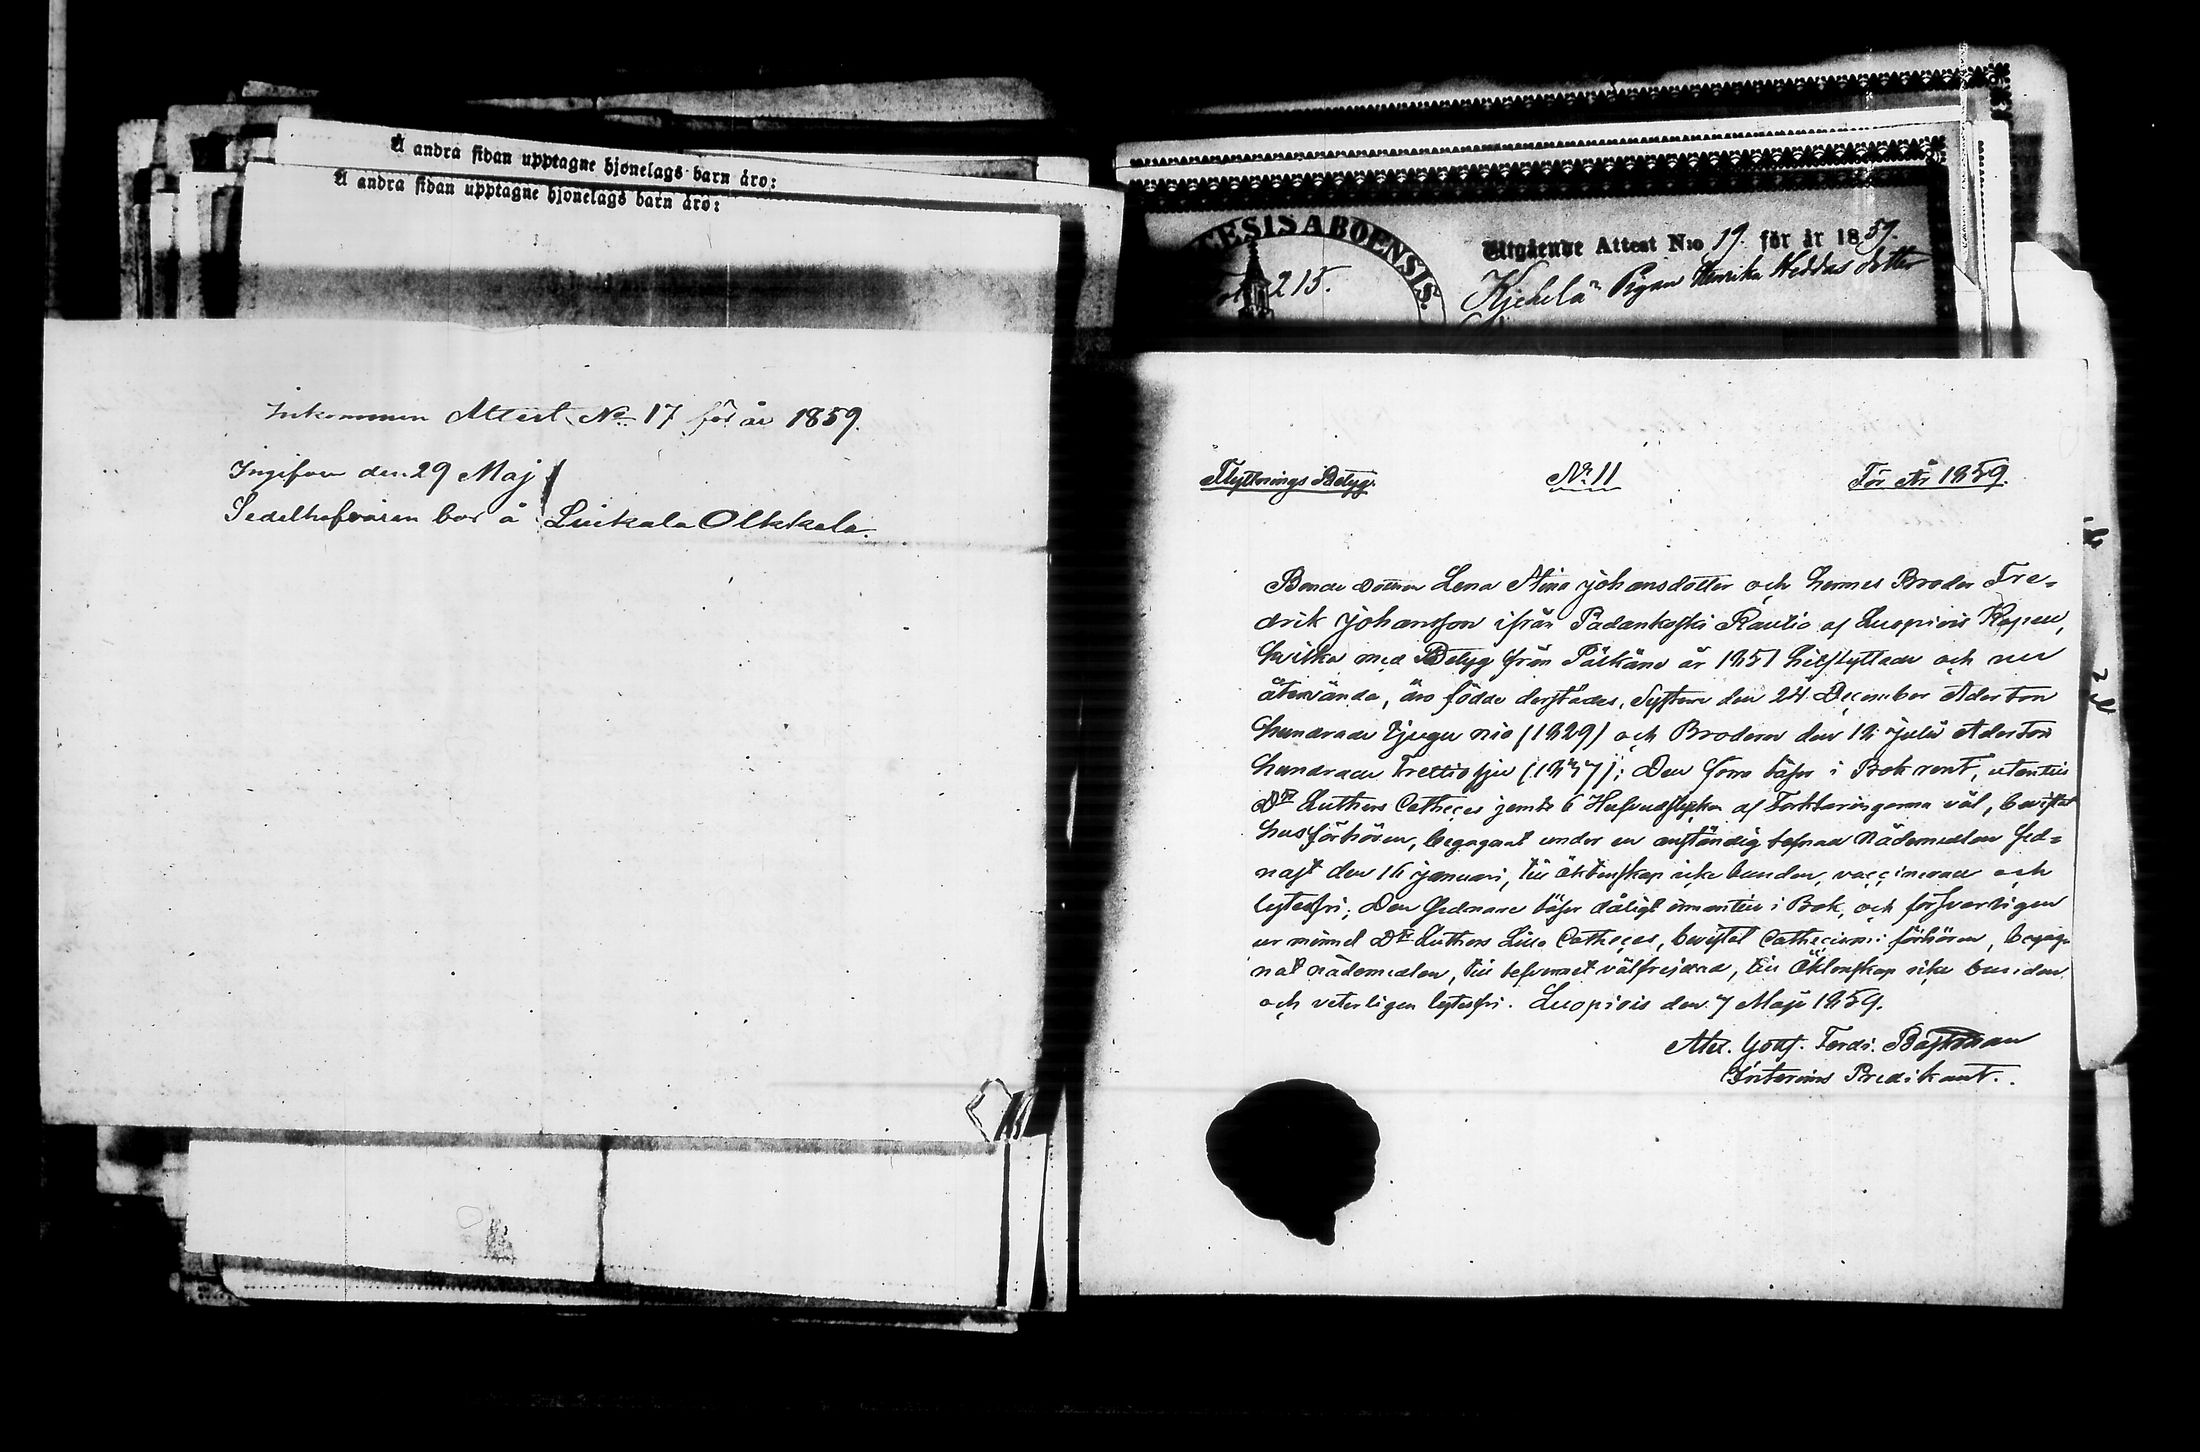 Å andra sidan upptagne hjonelags barn äro:
Å andra sidan upptagne hjonelags barn äro:
Inkommen Attest No 17 för år 1859.
Ingifven den 29 Maj
Sedelhafvaren bor å Luikala Olkkala.
CESIS ABOENSIS.
215.
Utgående Attest N:o 19. för år 1859.
Pigan Henrika Heddas dotter
Flyttnings Betyg.
No 11
För År 1859.
Bonde Dottren Lena Stina Johansdotter och hennes Broder Fre-
drik Johansson ifrån Padankoski Rautio af Luopiois Kapell,
hvilka med Betyg från Pälkäne år 1851 hitflyttade och nu
återvända, äro födde derstädes, Systern den 24 December Aderton
hundrade tjugu nio (1829) och Brodren den 12 Julii Aderton
hundrade trettiosju (1837); Den förra läser i Bok rent, utantill
Dr Luthers Catheces jemte 6 Hufvudstycken af Förklaringarna väl, bevistat
husförhören, begagnat under en anständig lefnad Nådemedlen sed-
nast den 16 Januari, till äktenskap icke bunden, vaccinerad och
lytesfri; Den sednare läser dåligt innantill i Bok, och försvarligen
ur minnet Dr Luthers Lilla Catheces, bevistat Cathecismi förhören, begag-
nat nådemedlen, till lefvernet välfrejdad, till Äktenskap icke bunden
och veterligen lytesfri. Luopiois den 7 Maji 1859.
Alex. Gust. Ferdi.
Interims Predikant.